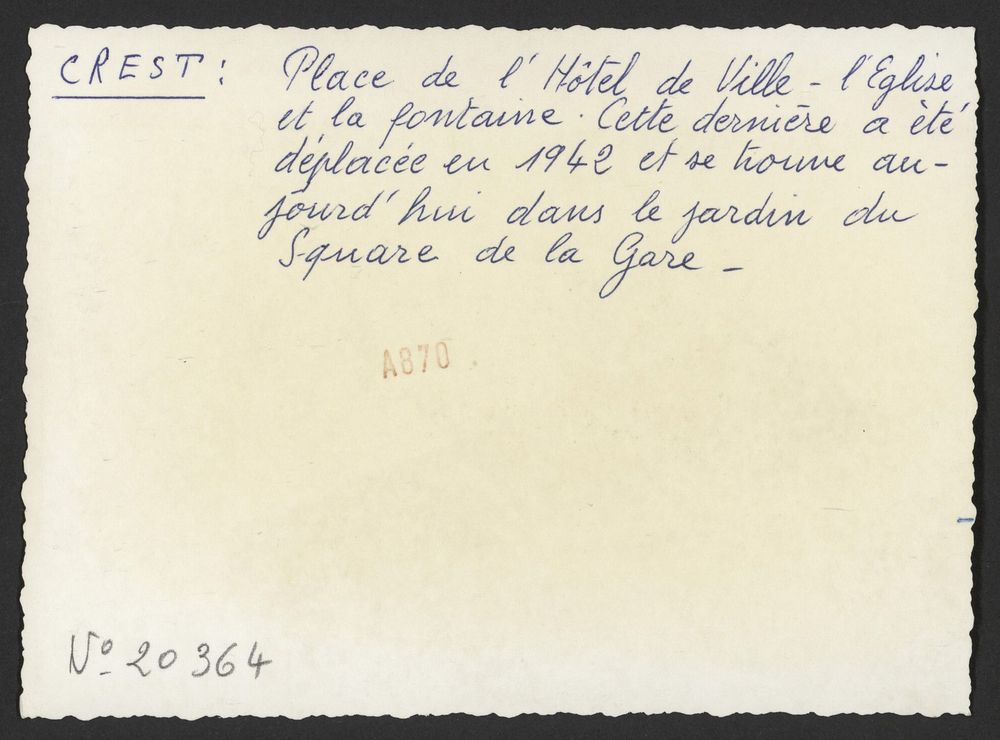 CREST : Place de l'Hôtel de Ville - l'Eglise
et la fontaine. Cette dernière a été
déplacée en 1942 et se trouve au-
jourd'hui dans le jardin du
Square de la Gare -
A870
N° 20364